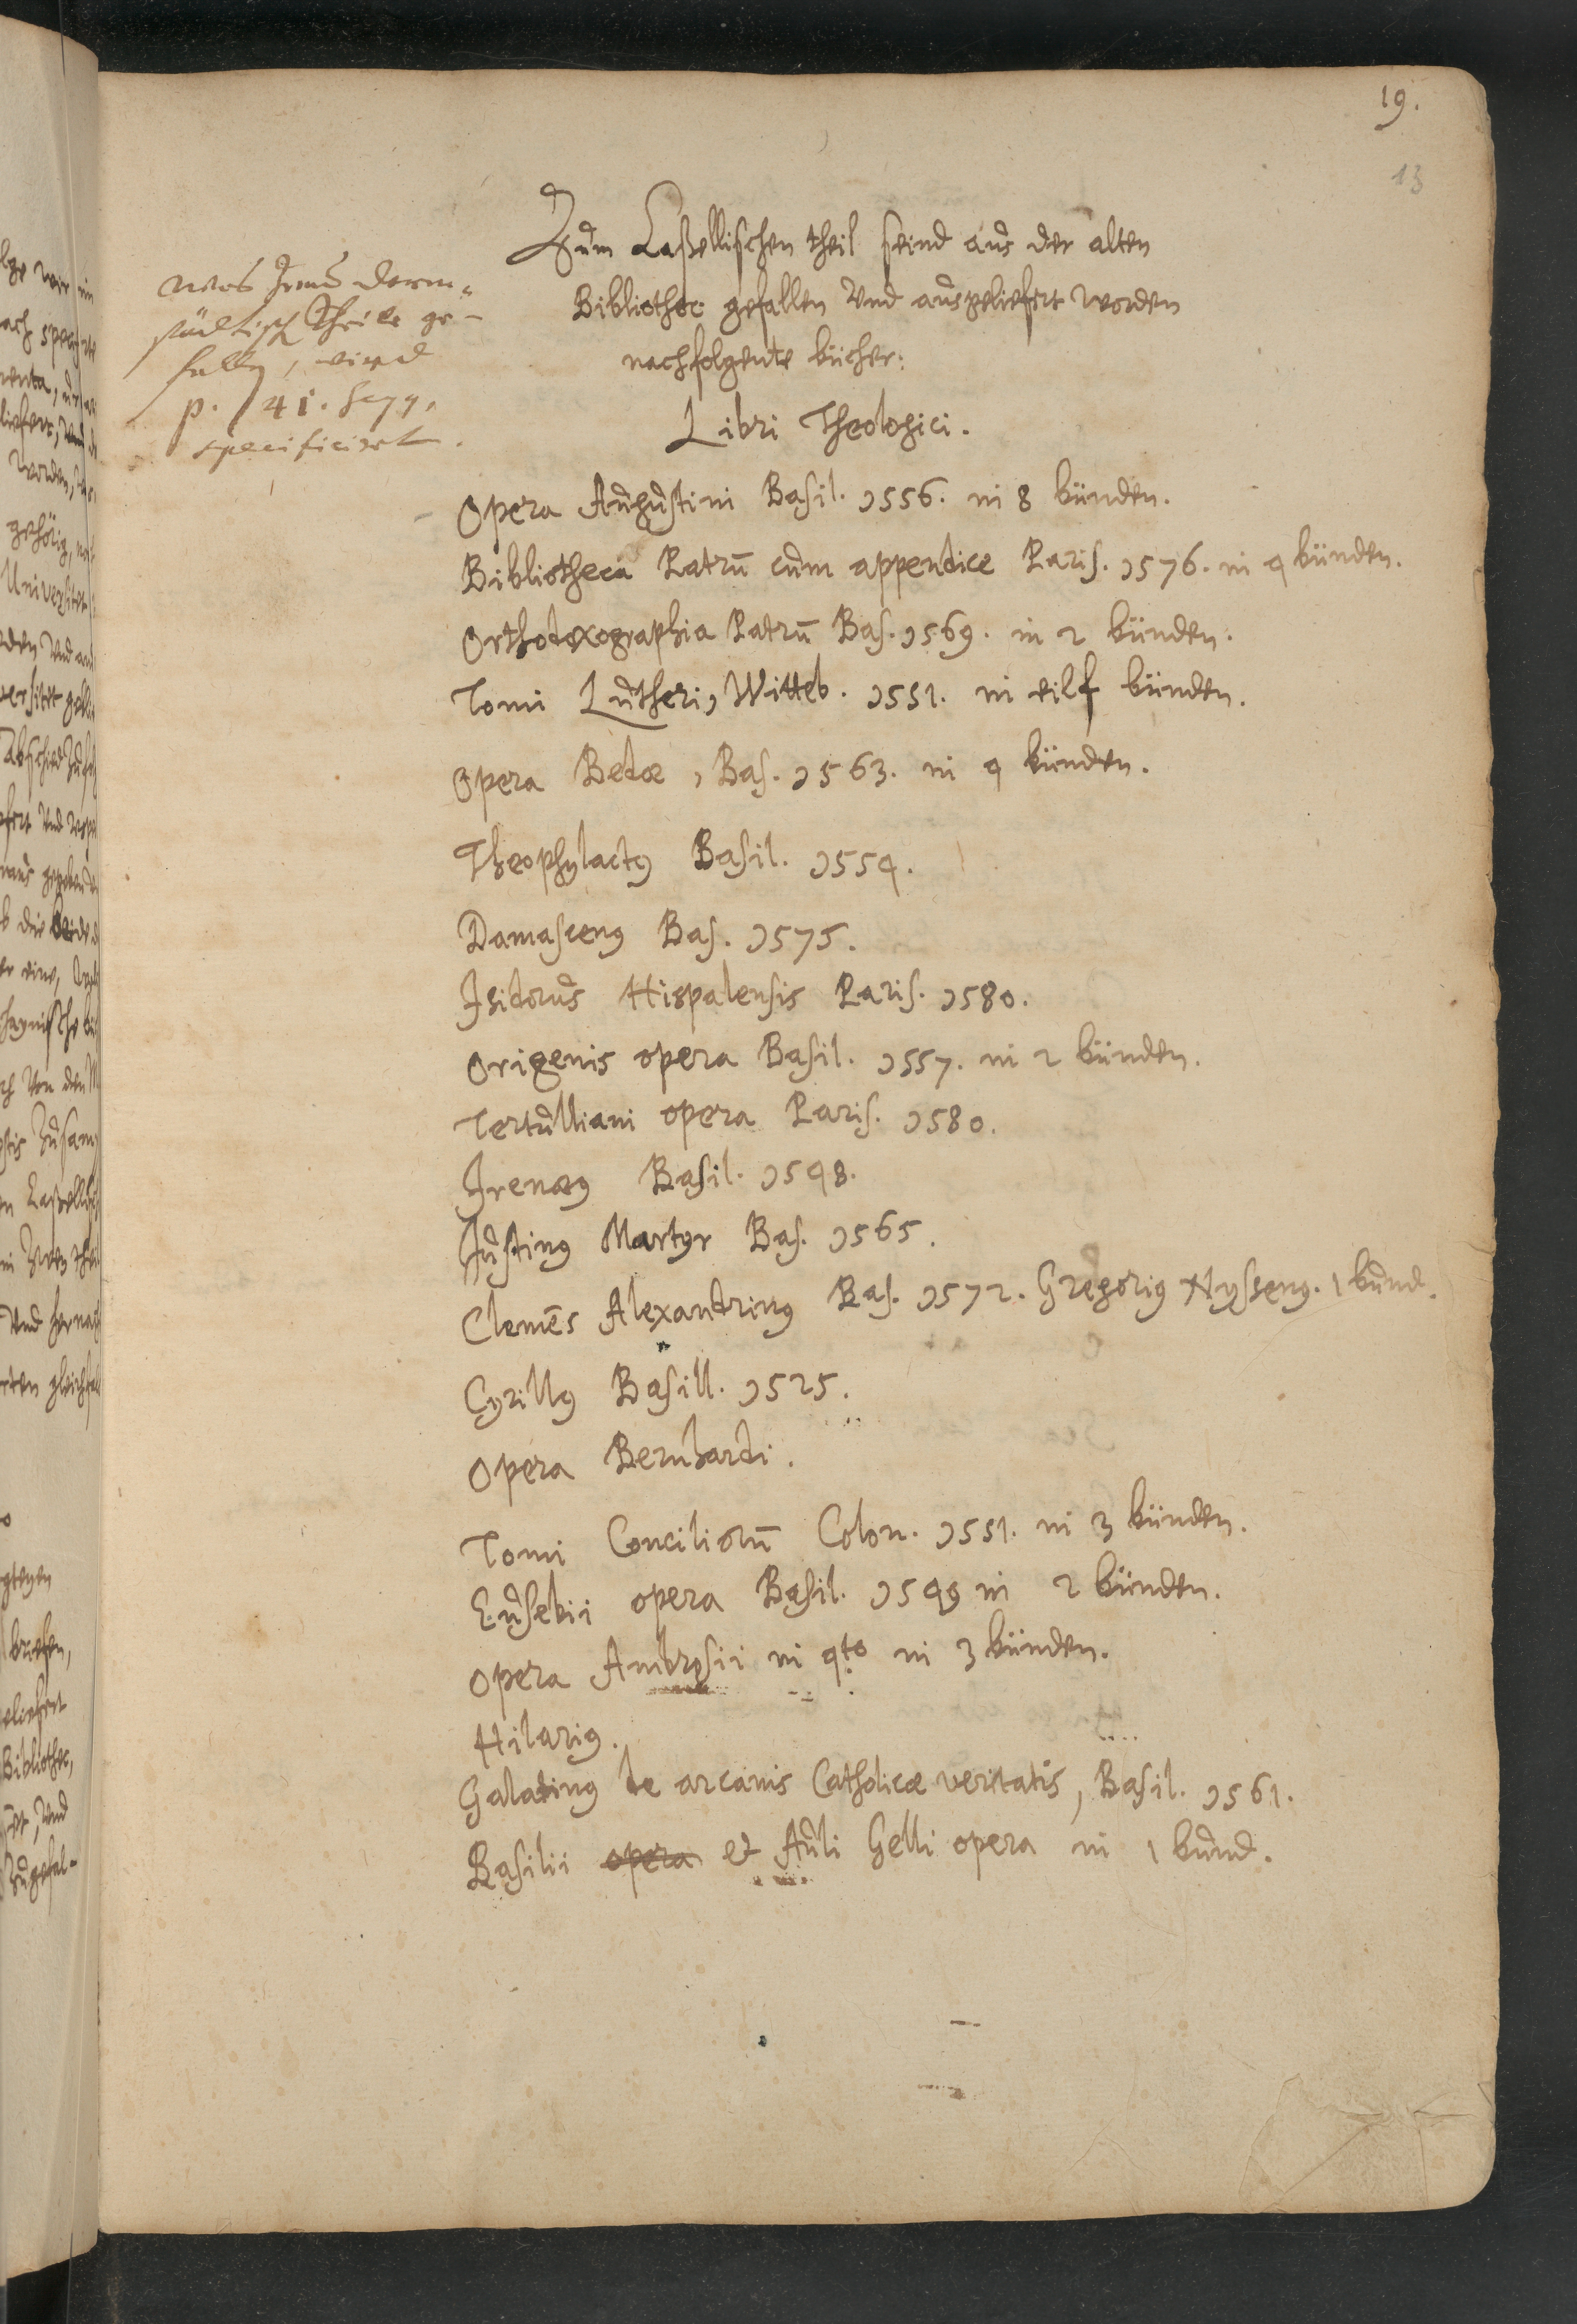 19.
13
Zum Caßellischen theil seind aus der alten
Bibliothec gefallen Vnd ausgeliefert worden
nachfolgente bücher:
was Darm-
städtisch Theile ge-
fallen, wird
p. 41. seqq.
specificirt.
Libri Theologici.
Opera Augustini Basil. 1556. in 8 bünden.
Bibliotheca Patrū cum appendice Paris. 1576. in 4 bünden.
Orthodoxographia Patrū Bas. 1569. in 2 bünden.
Tomi Lutheri, Witteb. 1551. in eilf bünden.
Opera Bedæ, Bas. 1563. in 4 bünden.
Theophylactꝰ Basil. 1554.
Damascenꝰ Bas. 1575.
Isidorus Hispalensis Paris. 1580.
Origenis opera Basil. 1557. in 2 bünden.
Tertulliani opera Paris. 1580.
Irenæꝰ Basil. 1548.
Justinꝰ Martyr Bas. 1565.
Clemēs Alexandrinꝰ Bas. 1572. Gregoriꝰ Nyssenꝰ. 1 bund.
Cyrillꝰ Basill. 1525.
Opera Bernhardi.
Tomi Conciliorū Colon. 1551. in 3 bünden.
Eusebii opera Basil. 1549 in 2 bünden.
Opera Ambrosii in 4to in 3 bünden.
Hilariꝰ.
Galatinꝰ de arcanis Catholicæ veritatis, Basil. 1561.
Basilii opera et Auli Gelli opera in 1 bund.